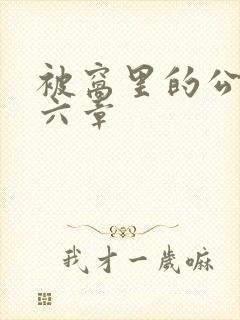 被窝里的公
六章
我才一歲嘛